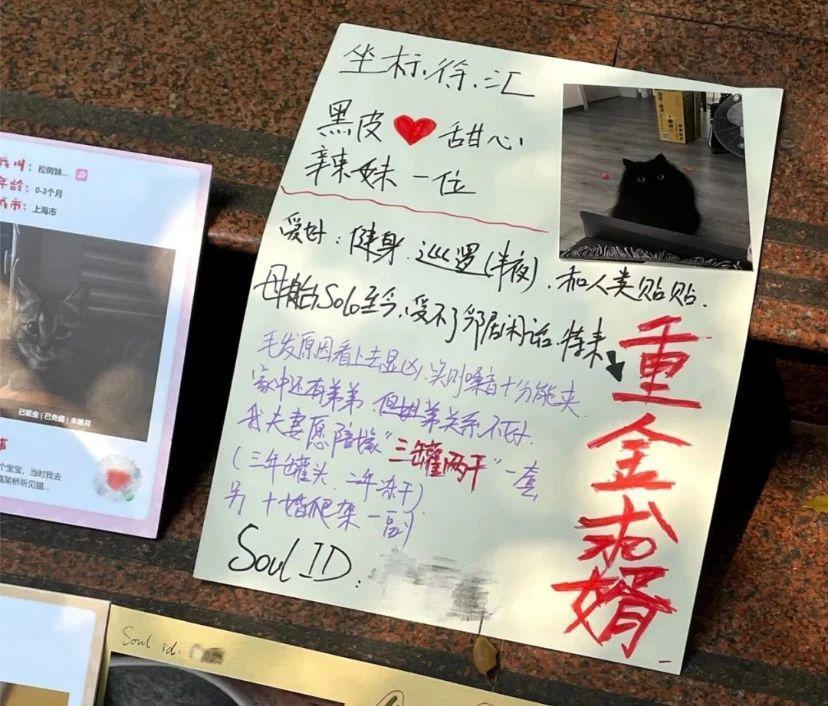 坐标.徐.汇
黑皮❤甜心
辣妹一位
爱好：健身.巡逻(半夜).和人类贴贴.
母胎Solo至今、受不了邻居闲话.特来
重金求婿
毛发原因看上去显凶,实则嗓音十分能夹
家中还有弟弟,但姐弟关系不好.
我夫妻愿陪嫁“三罐两干”一套
(三年罐头、二年冻干)
另十婚爬架一副
Soul ID:
我叫：松树妹...
年龄：0-3个月
城市：上海市
已驱虫 | 已免疫 |
事
个宝宝，当时我去
高架桥听见猫...
Soul id: